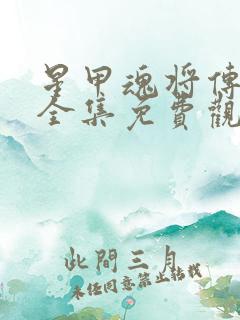 星甲魂将傳
全集免費觀
此間三月
未经同意禁止转载